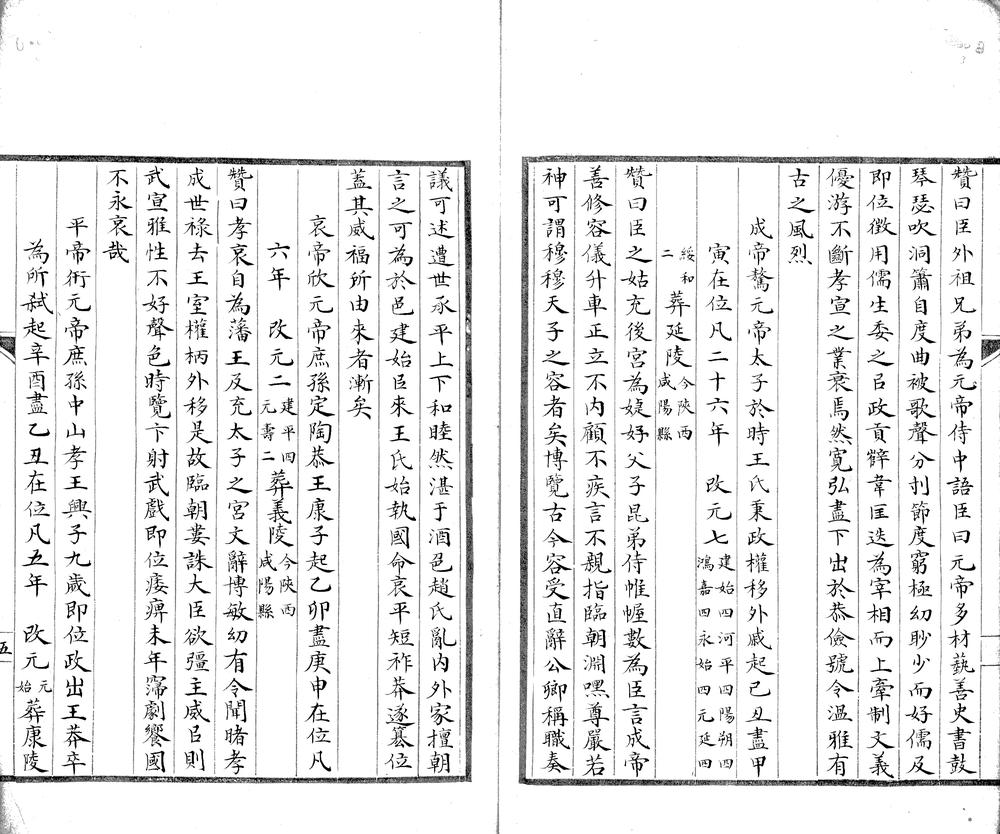 贊曰臣外祖兄弟為元帝侍中語臣曰元帝多材藝善史書鼓
琴瑟吹洞簫自度曲被歌聲分刌節度窮極幼眇少而好儒及
即位徵用儒生委之㠯政貢薛韋匡迭為宰相而上牽制文義
優游不斷孝宣之業衰焉然寬弘盡下出於恭儉號令溫雅有
古之風烈
成帝驁元帝太子於時王氏秉政權移外戚起己丑盡甲
寅在位凡二十六年 改元七建始四河平四陽朔四鴻嘉四永始四元延四
綏和二葬延陵今陝西咸陽縣
贊曰臣之姑充後宮為婕妤父子昆弟侍帷幄數為臣言成帝
善修容儀升車正立不內顧不疾言不親指臨朝淵嘿尊嚴若
神可謂穆穆天子之容者矣博覽古今容受直辭公卿稱職奏
議可述遭世承平上下和睦然湛于酒色趙氏亂內外家擅朝
言之可為於邑建始㠯來王氏始執國命哀平短祚莽遂篡位
蓋其威福所由來者漸矣
哀帝欣元帝庶孫定陶恭王康子起乙卯盡庚申在位凡
六年 改元二建平四元壽二葬義陵今陝西咸陽縣
贊曰孝哀自為藩王及充太子之宮文辭博敏幼有令聞睹孝
成世祿去王室權柄外移是故臨朝婁誅大臣欲彊主威㠯則
武宣雅性不好聲色時覽卞射武戲即位痿痺末年寖劇饗國
不永哀哉
平帝衎元帝庶孫中山孝王興子九歲即位政出王莽卒
為所弒起辛酉盡乙丑在位凡五年 改元元始葬康陵
五